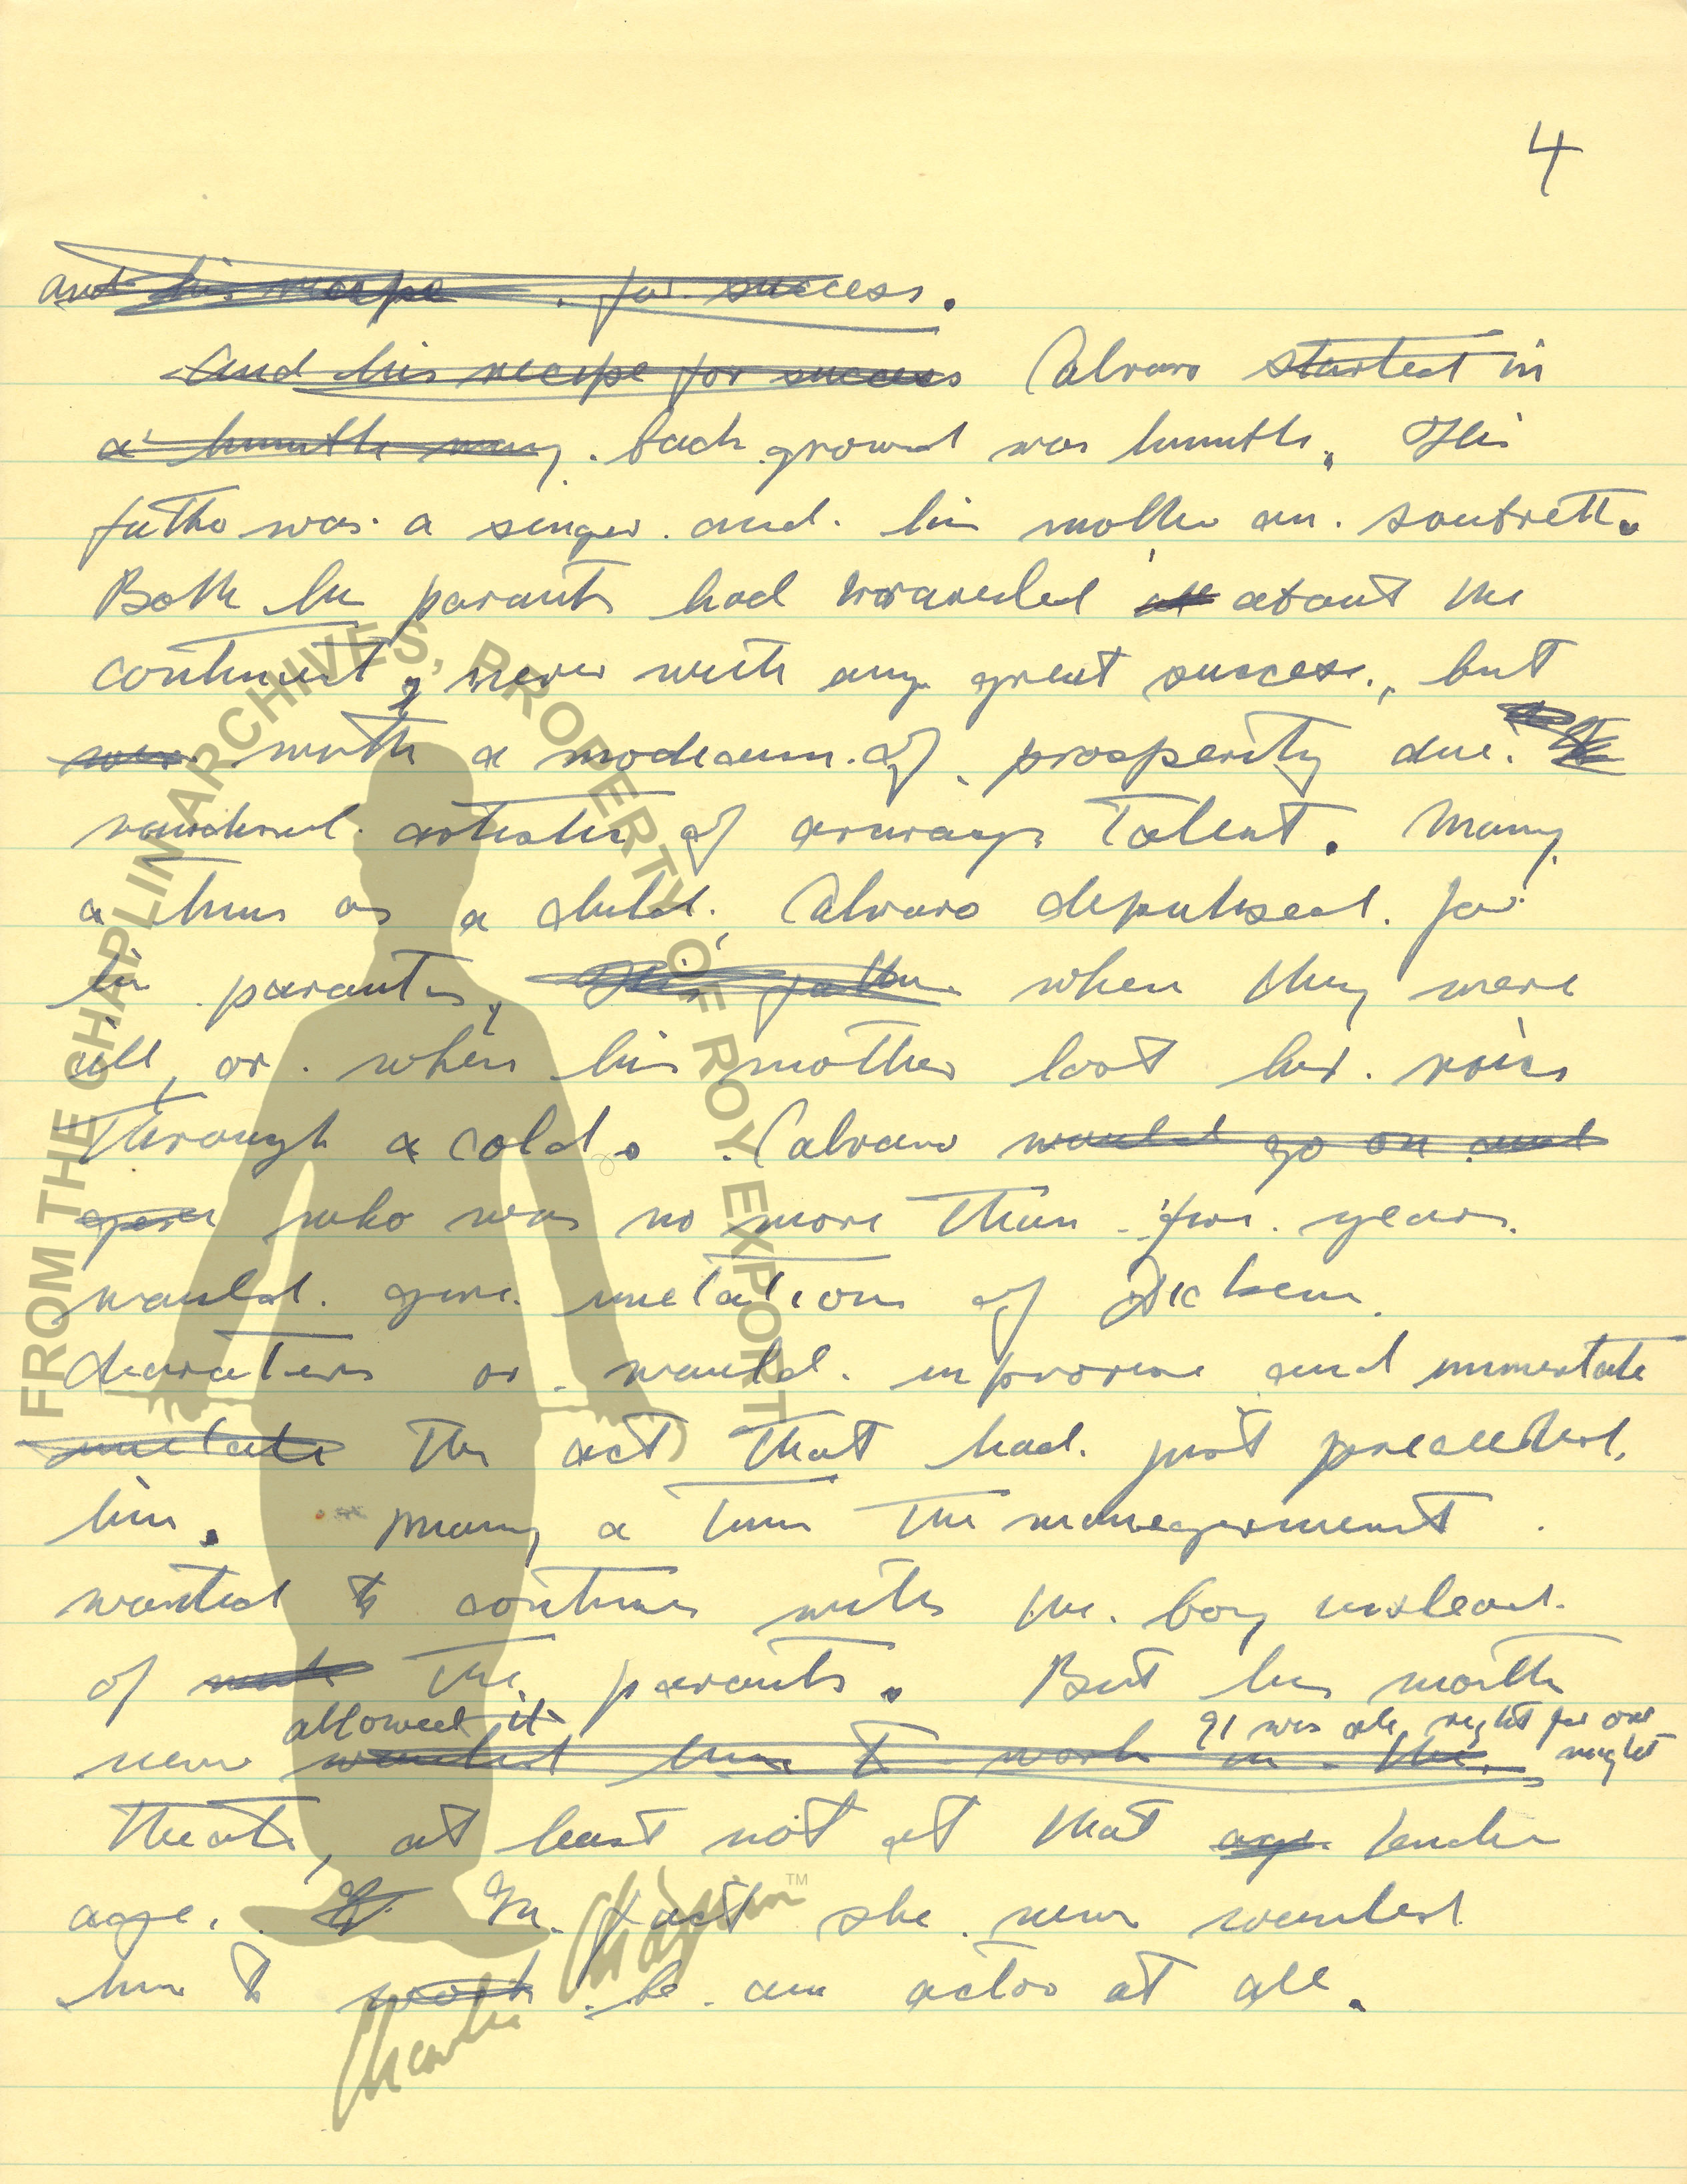 4
and his recipe for success.
And his recipe for success Calvaro started in
a humble way. back ground was humble. His
father was a singer and his mother an soubrette.
Both his parents had traveled all about the
continent, never with any great success, but
with a modicum of prosperity due.
vaudevil artists of average talent. Many
a time as a child, Calvaro deputised for
his parents, His father when they were
ill, or when his mother lost her voice
through a cold. Calvaro would go on and
give who was no more than five years
would give imetations of Dickens
charaters or would improvise and immertate
imetate the act that had just preceeded
him. Many a time the manegerment
wanted to continue with the boy instead
of the parents. But his mother
allowed it It was all right for one
never wanted him to work in the night
theatre, at least not at that age tender
age. In fact she never wanted
him to work be an actor at all.
FROM THE CHAPLIN ARCHIVES, PROPERTY OF ROY EXPORT
Charlie Chaplin™